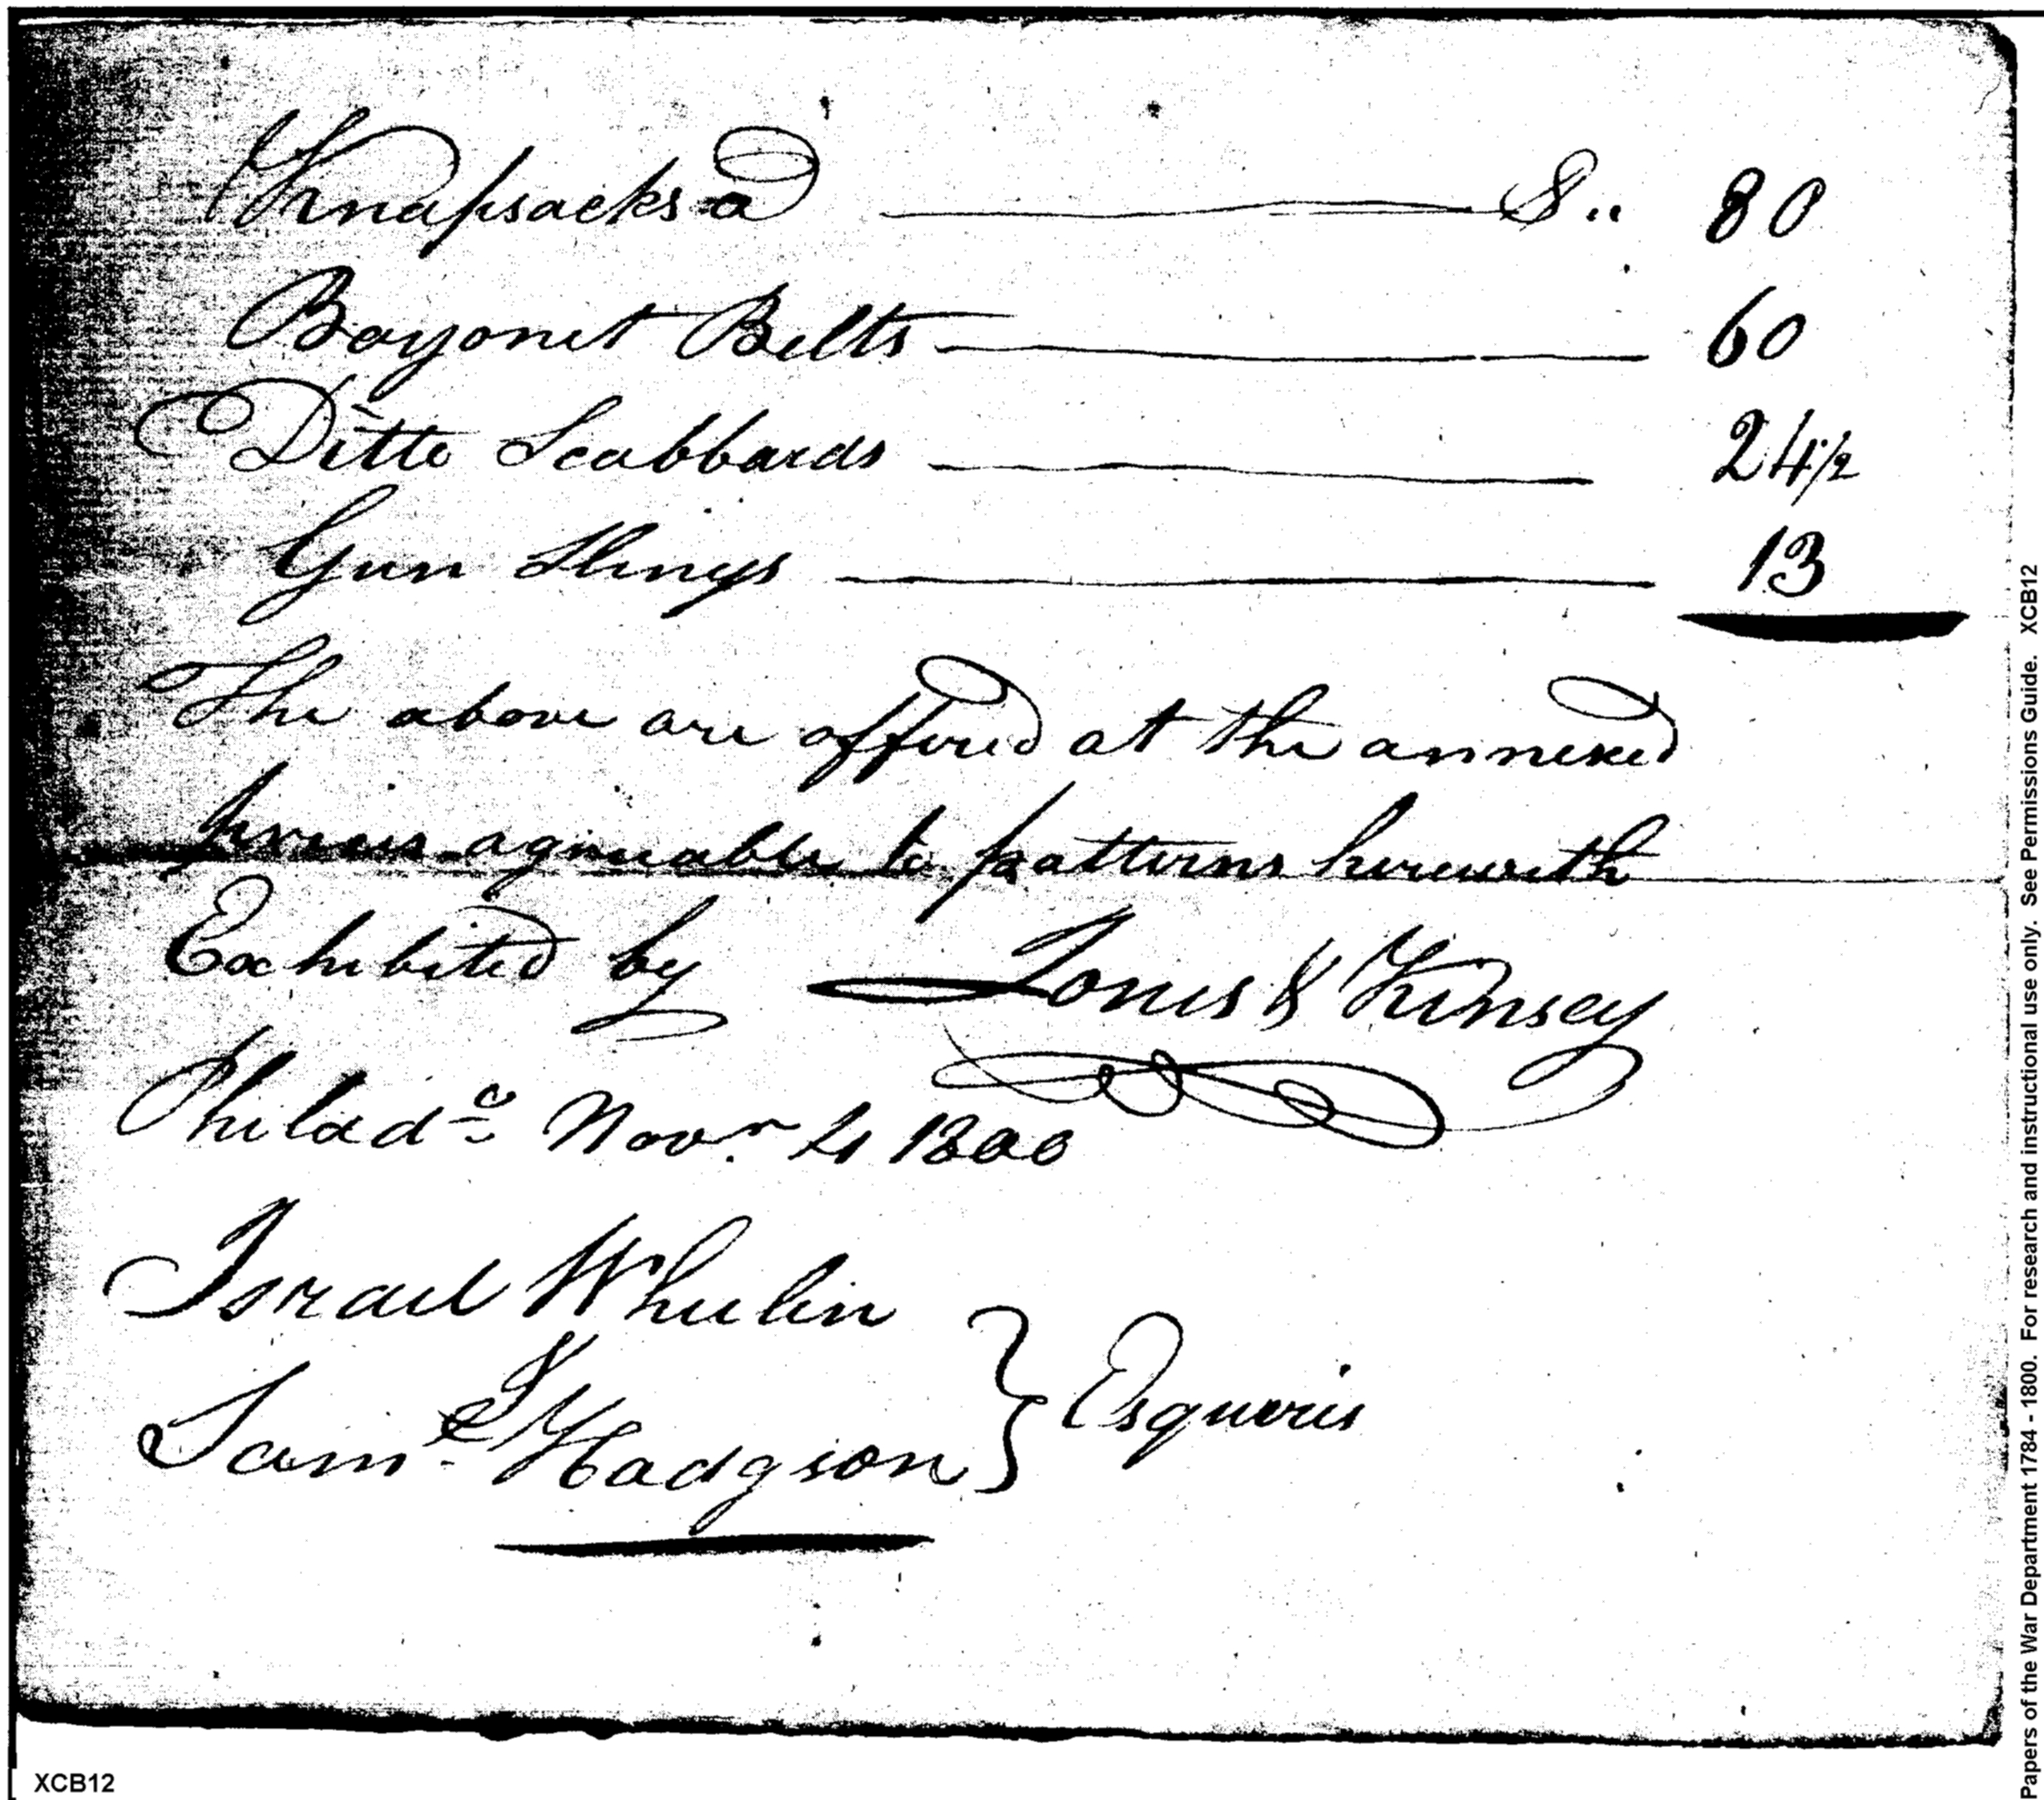 Knapsacks a $ .. 80
Bayonet Belts 60
Ditto Scabbards 24 1/2
Gun Slings 13
The above are offered at the annexed
prices agreeable to patterns herewith
Exhibited by Jones & Kinsey
Philada. Novr. 4 1800
Israel Whelen
Saml. Hodgson } Esquires
XCB12
Papers of the War Department 1784 - 1800. For research and instructional use only. See Permissions Guide. XCB12